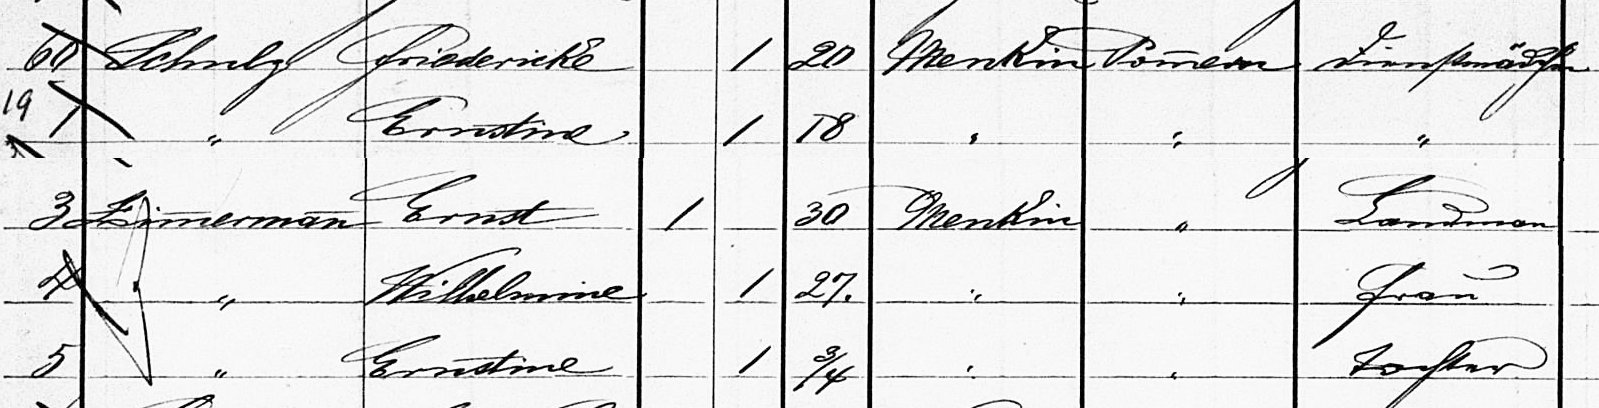 60 Schulz Friedericke 1 20 Menkin Pom̄ern Dienstmädchen
19
1 " Ernstine 1 18 " " "
3 Zim̄erman̄ Ernst 1 30 Menkin " Landman
4 " Wilhelmine 1 27. " " Frau
5 " Ernstine 1 3/4 " " Tochter